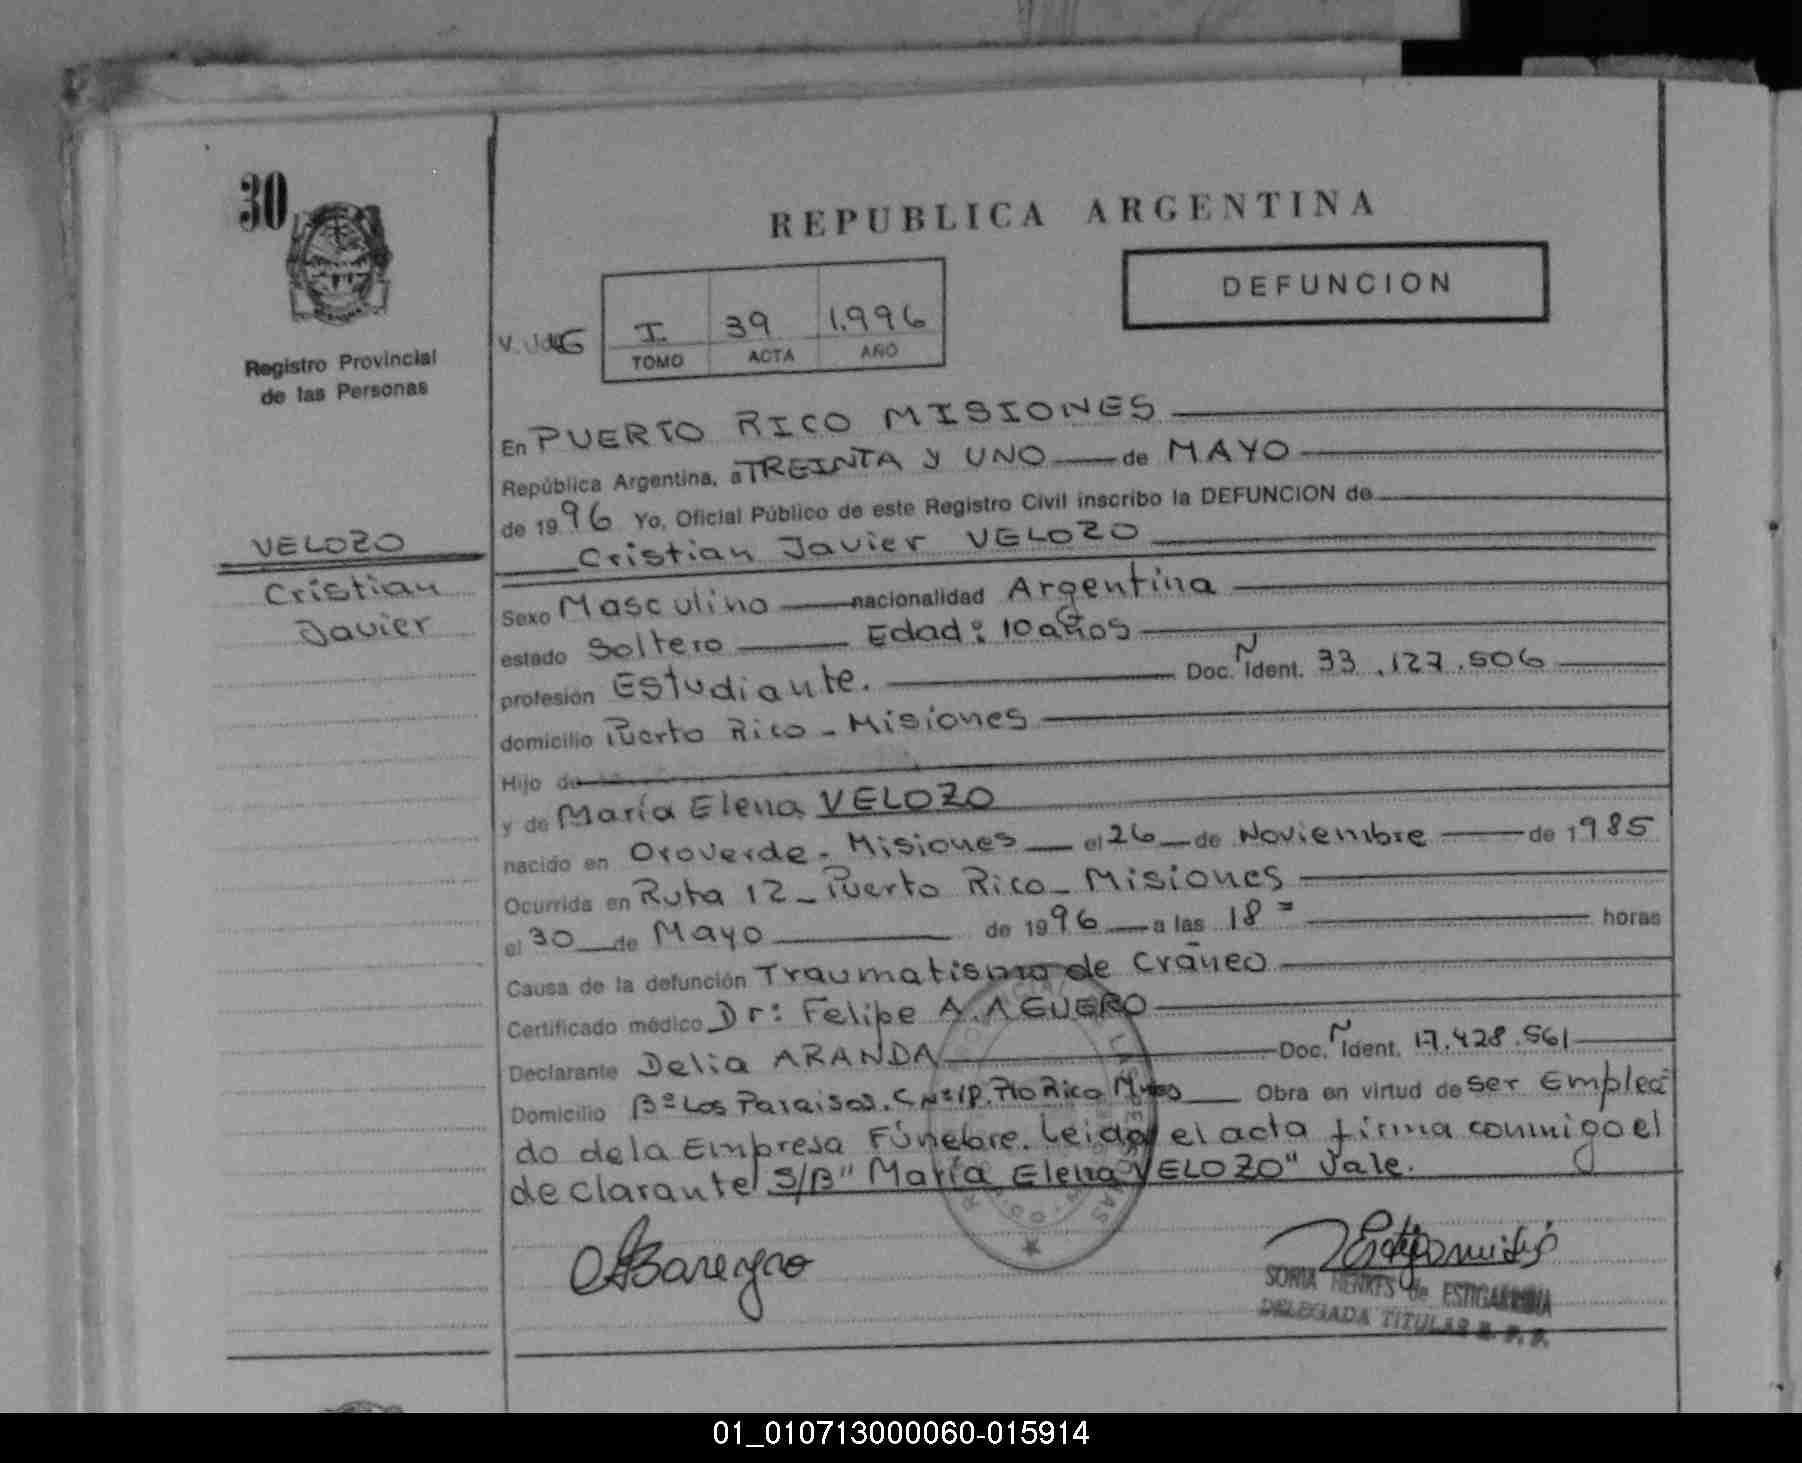 30
REPUBLICA ARGENTINA
DEFUNCION
I. 39 1.996
TOMO ACTA AÑO
Registro Provincial
de las Personas
VELOZO
Cristian
Javier
En PUERTO RICO MISIONES
República Argentina, a TREINTA y UNO de MAYO
de 1996 Yo, Oficial Público de este Registro Civil inscribo la DEFUNCION de
Cristian Javier VELOZO
Sexo Masculino nacionalidad Argentina
estado Soltero Edad: 10 años
profesión Estudiante. Doc. Ident. 33.127.506
domicilio Puerto Rico - Misiones
Hijo de
y de María Elena VELOZO
nacido en Oroverde - Misiones el 26 de Noviembre de 1985
Ocurrida en Ruta 12 - Puerto Rico - Misiones
el 30 de Mayo de 1996 a las 18 = horas
Causa de la defunción Traumatismo de Cráneo
Certificado médico Dr: Felipe A. AGUERO
Declarante Delia ARANDA Doc. Ident. 17.428.561
Domicilio Bº Los Paraisos. C Nº 1P. Pto Rico Mnes Obra en virtud de ser Emplea
do de la Empresa Fúnebre. Leida el acta firma conmigo el
declarante S/B" María Elena VELOZO" Vale.
SONIA HENKES de ESTIGARRIBIA
DELEGADA TITULAR R. P. P.
01_010713000060-015914